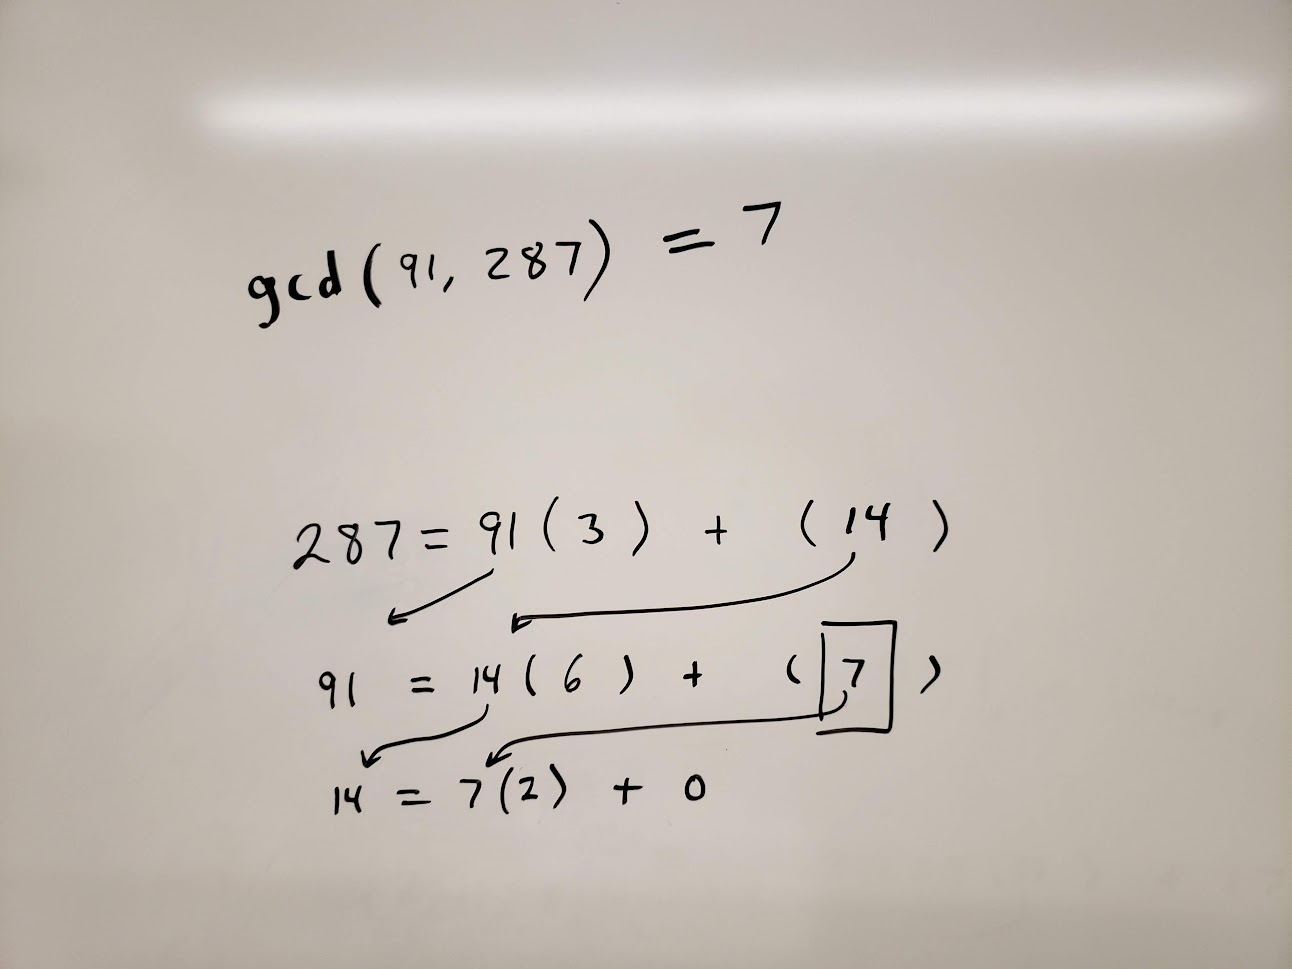 gcd(91, 287) = 7
287 = 91(3) + (14)
91 = 14(6) + (7)
14 = 7(2) + 0